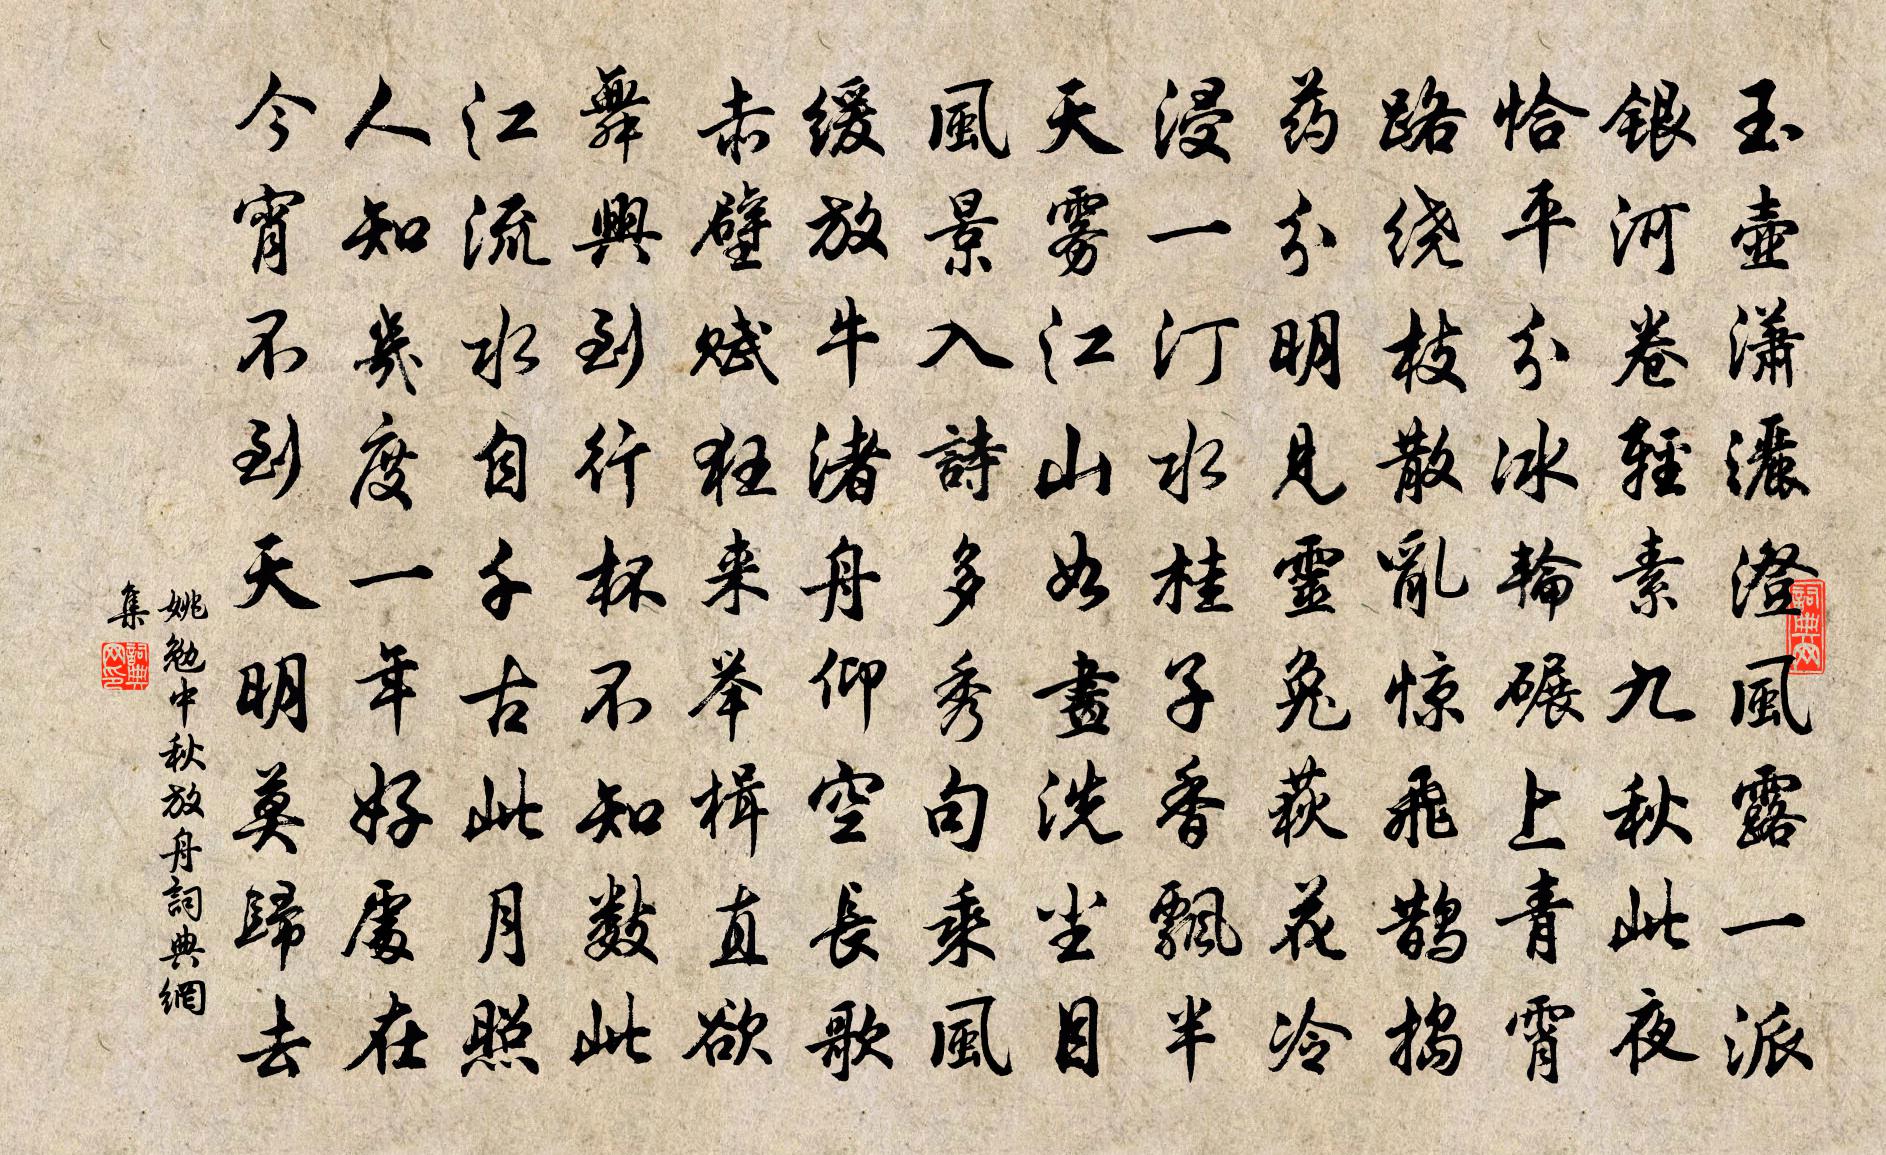 玉壺潇灑澄風露一派
銀河卷輕素九秋此夜
恰平分冰輪碾上青霄
路绕枝散亂惊飛鹊搗
药分明見靈兔荻花冷
浸一汀水桂子香飄半
天雾江山如畫洗尘目
風景入詩多秀句乘風
缓放牛渚舟仰空長歌
赤壁赋狂来举楫直欲
舞興到行杯不知數此
江流水自千古此月照
人知幾度一年好處在
今宵不到天明莫歸去
姚勉中秋放舟詞典網
集
詞典網
詞典網印